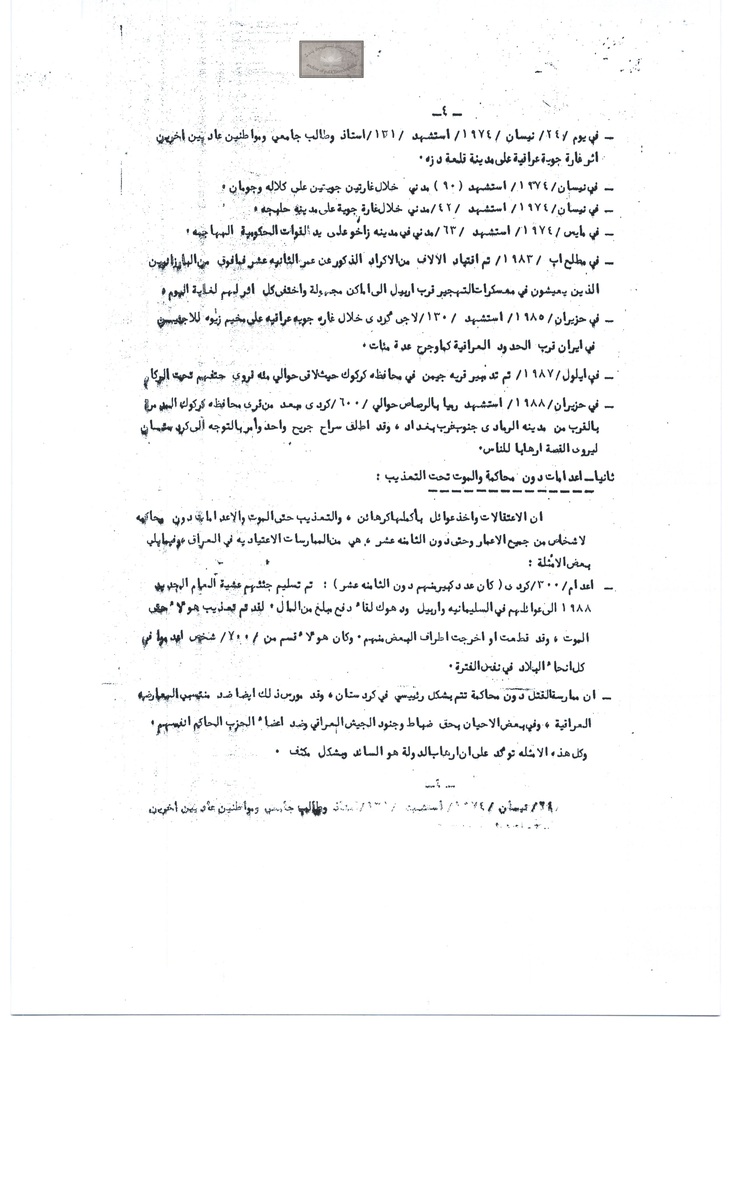 ـ ٤ـ
ـ في يوم /٢٤/ نيسان /١٩٧٤/ استشهد /١٣١/استاذ وطالب جامعي ومواطنين عاديين اخرين
اثر غارة جوية عراقية على مدينة قلعة دزه٠
ـ في نيسان/١٩٧٤/ استشهد (٩٠) مدني خلال غارتين جويتين على كلاله وجومان ٠
ـ في نيسان/١٩٧٤/ استشهد /٤٢/مدني خلال غارة جوية على مدينه حلبجه ٠
ـ في مايس/١٩٧٤/ استشهد /٦٣/مدني في مدينه زاخو على يد القوات الحكومية المهاجمه ٠
ـ في مطلع اب /١٩٨٣/ تم اقتياد الالاف من الاكراد الذكور عن عمر الثانيه عشر فمافوق من البارزانيين
الذين يعيشون في معسكرات التهجير قرب اربيل الى اماكن مجهولة واختفى كل اثر لهم لغاية اليوم ٠
ـ في حزيران/١٩٨٥/ استشهد /١٣٠/لاجئ كردى خلال غاره جويه عراقيه على مخيم زيوه للاجئين
في ايران قرب الحدود العراقية كما وجرح عدة مئات ٠
ـ في ايلول/١٩٨٧/ تم تدمير قريه جيمن في محافظه كركوك حيث لاقى حوالي مئه قروى حتفهم تحت الركام
ـ في حزيران/١٩٨٨/ استشهد رميا بالرصاص حوالي /٦٠٠/كردى مبعد من قرى محافظه كركوك المدمرة
بالقرب من مدينه الرمادى جنوب غرب بغداد ، وقد اطلق سراح جريح واحد وأمر بالتوجه الى كردستان
ليروى القصة ارهابا للناس٠
ثانيا ـ اعدامات دون محاكمة والموت تحت التعذيب :
ان الاعتقالات واخذ عوائل بأكملها كرهائن ، والتعذيب حتى الموت والاعدامات دون محاكمه
لاشخاص من جميع الاعمار وحتى دون الثامنه عشر ، هي من الممارسات الاعتياديه في العراق وفيمايلي
بعض الامثلة :
ـ اعدام/٣٠٠/كردى (كان عدد كبير منهم دون الثامنه عشر) : تم تسليم جثثهم عشية العام الجديد
١٩٨٨ الى عوائلهم في السليمانيه واربيل ودهوك لقاء دفع مبلغ من المال ٠ لقد تم تعذيب هولاء حتى
الموت ، وقد قطعت او اخرجت اطراف البعض منهم ٠ وكان هولاء قسم من /٧٠٠/ شخص اعدموا في
كل انحاء البلاد في نفس الفترة ٠
ـ ان ممارسة القتل دون محاكمة تتم بشكل رئيسي في كردستان ، وقد مورس ذلك ايضا ضد منتسبي المعارضه
العراقية ، وفي بعض الاحيان بحق ضباط وجنود الجيش العراقي وضد اعضاء الحزب الحاكم انفسهم ٠
وكل هذه الامثله توكد على ان ارهاب الدولة هو السائد وبشكل مكثف ٠
/٢٤/ نيسان /١٩٧٤/ استشهد /١٣١/استاذ وطالب جامعي ومواطنين عاديين اخرين